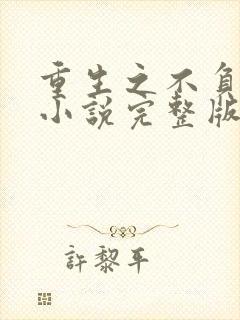 重生之不負
小說完整版
許黎平